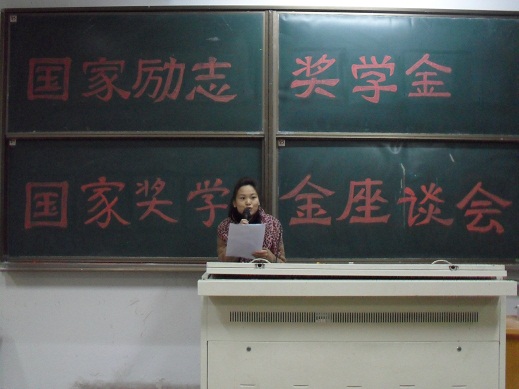 国家励志 奖学金
国家奖学金座谈会